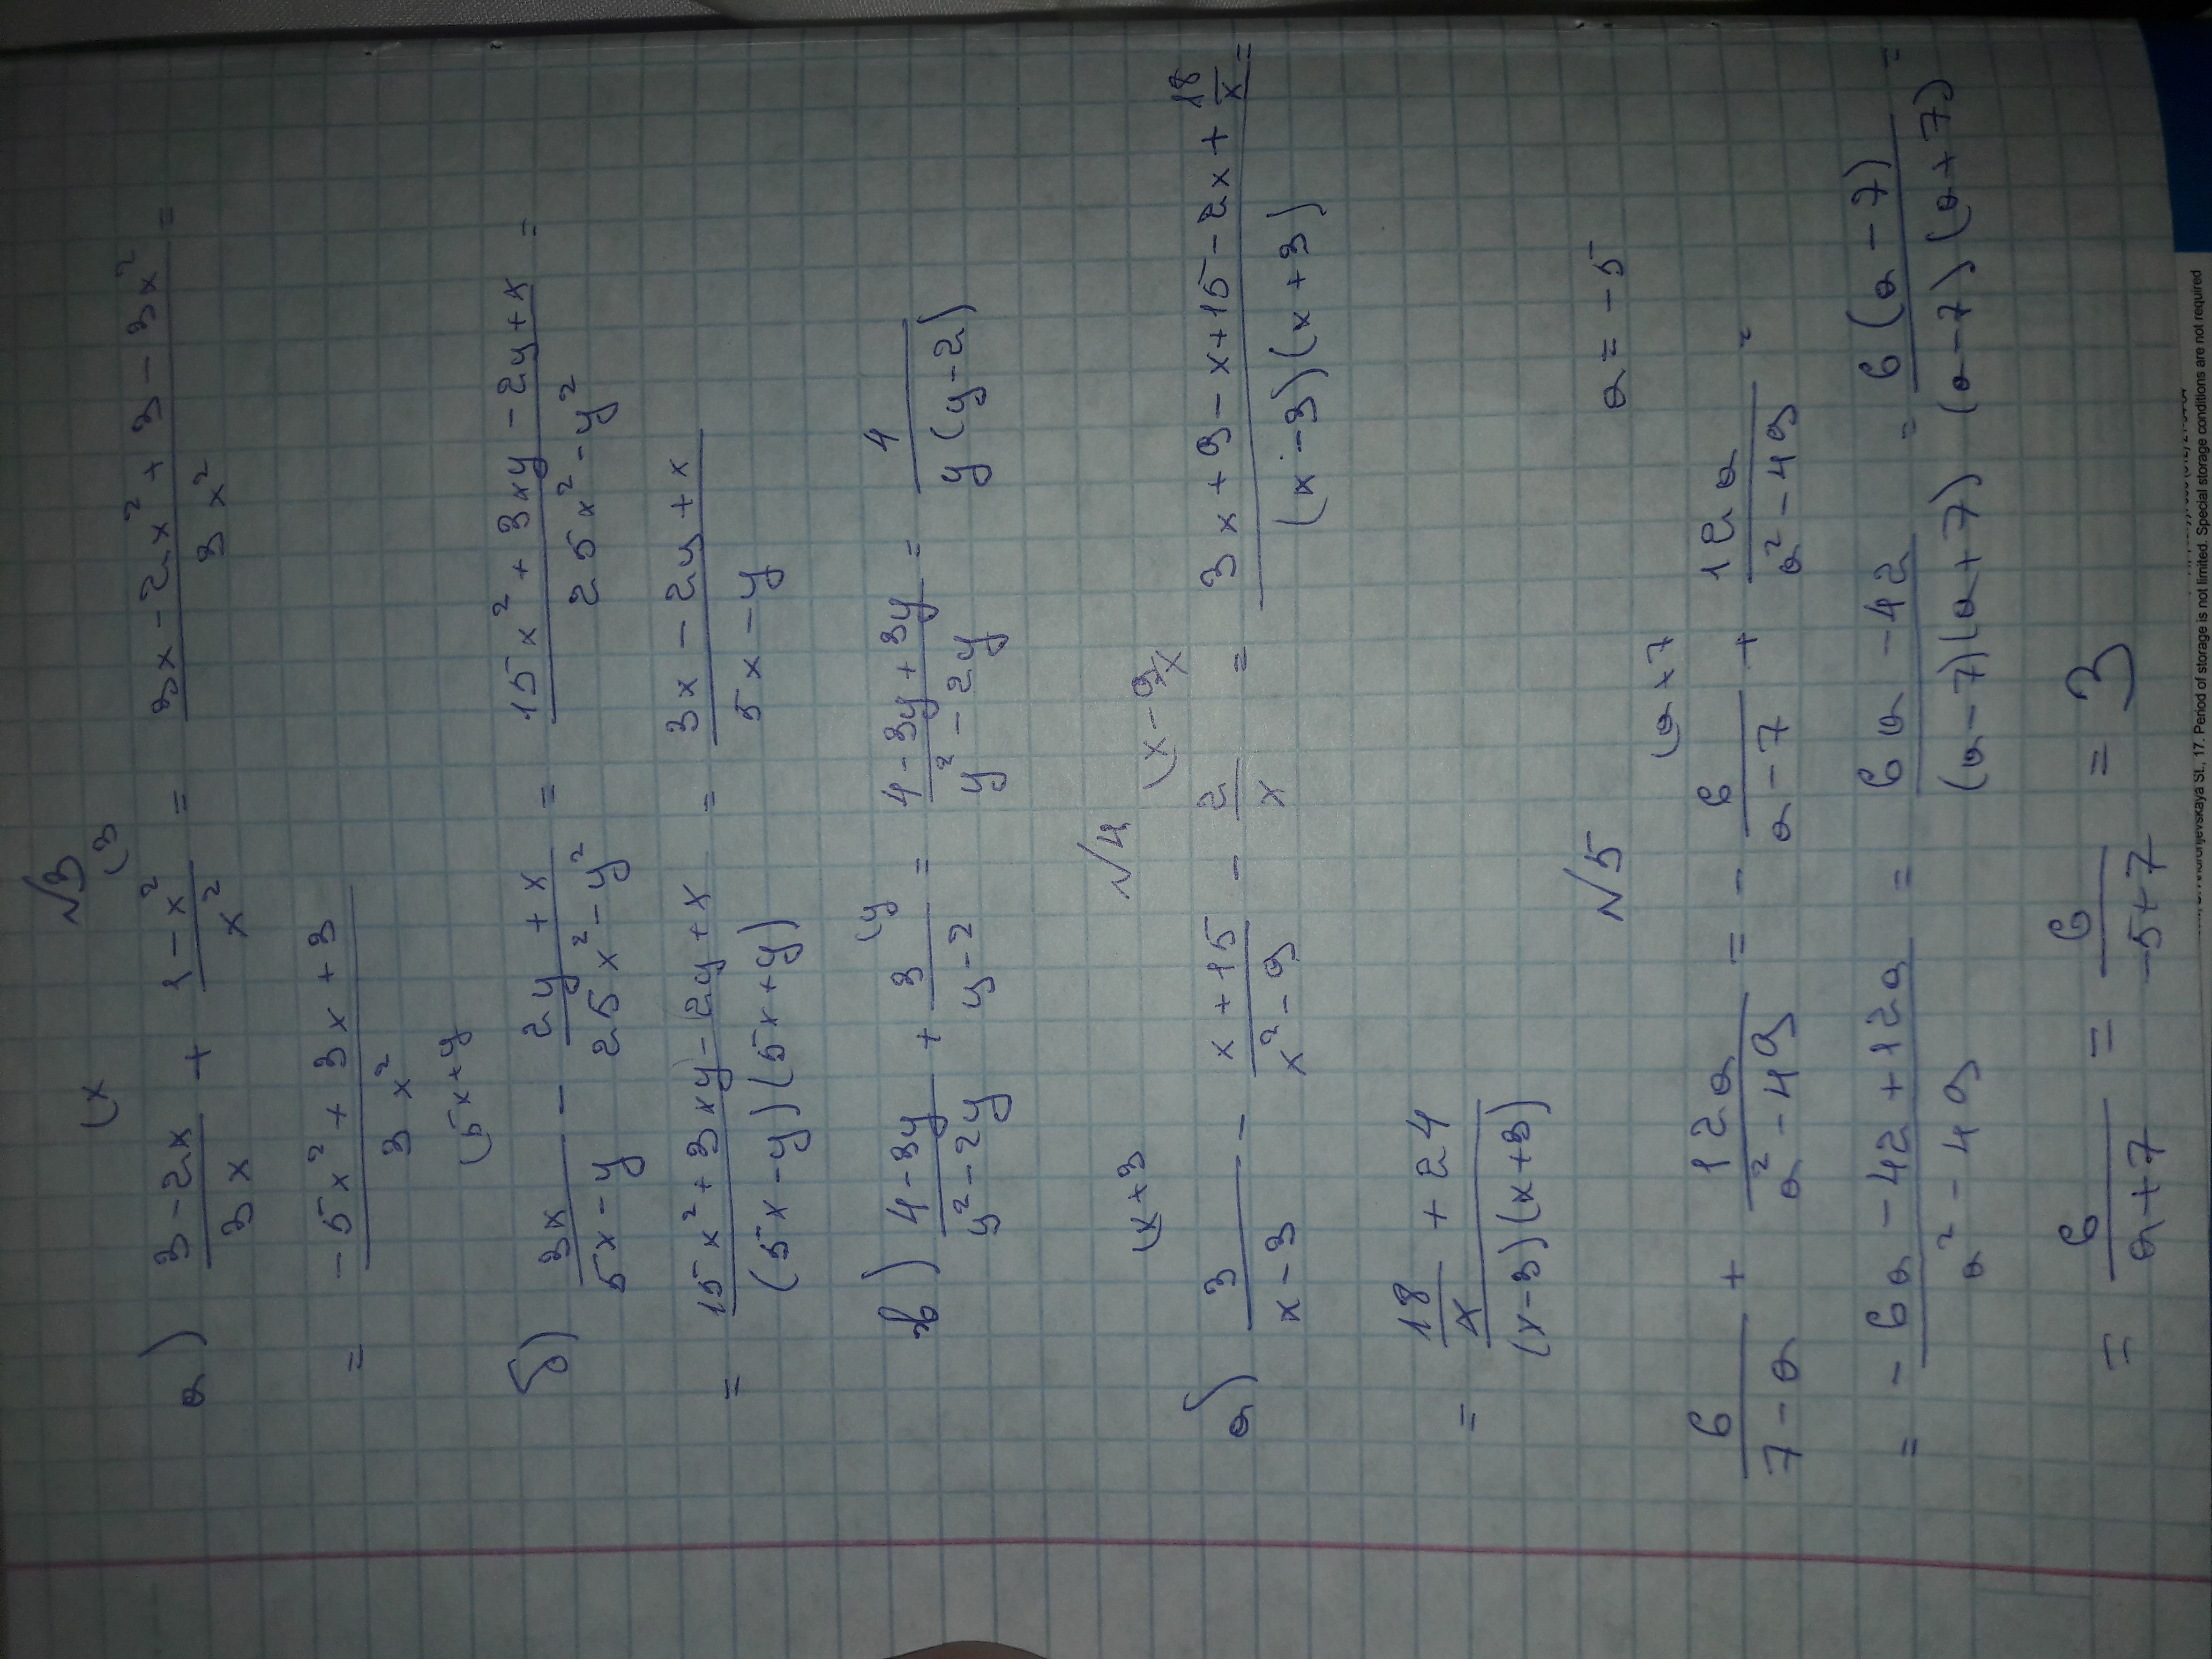 √3
(x (3
а) 3-2x/3x + 1-x²/x² = 3x-2x²+3-3x²/3x² =
= -5x²+3x+3/3x²
(5x+y
б) 3x/5x-y - 2y+x/25x²-y² = 15x²+3xy-2y+x/25x²-y² =
= 15x²+3xy-2y+x/(5x-y)(5x+y) = 3x-2y+x/5x-y
в) 4-3y/y²-2y + 3(y/y-2 = 4-3y+3y/y²-2y = 4/y(y-2)
√4
(x+3 (x-9/x
а) 3/x-3 - x+15/x²-9 - 2/x = 3x+9-x+15-2x+18/x/(x-3)(x+3) =
= 18/x+24/(x-3)(x+3)
√5 a=-5
(a+7
6/7-a + 12a/a²-49 = - 6/a-7 + 12a/a²-49 =
= -6a-42+12a/a²-49 = 6a-42/(a-7)(a+7) = 6(a-7)/(a-7)(a+7) =
= 6/a+7 = 6/-5+7 = 3
St., 17. Period of storage is not limited. Special storage conditions are not required